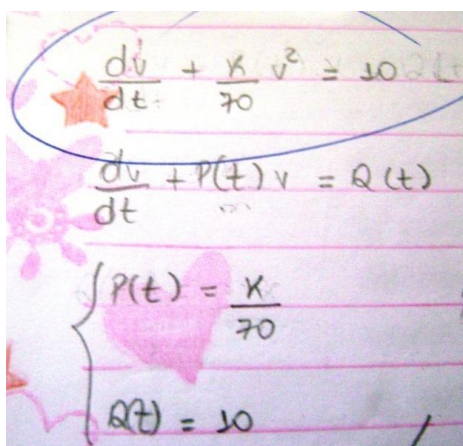 dv/dt + K/70 v² = 10
dv/dt + P(t) v = Q(t)
P(t) = K/70
Q(t) = 10